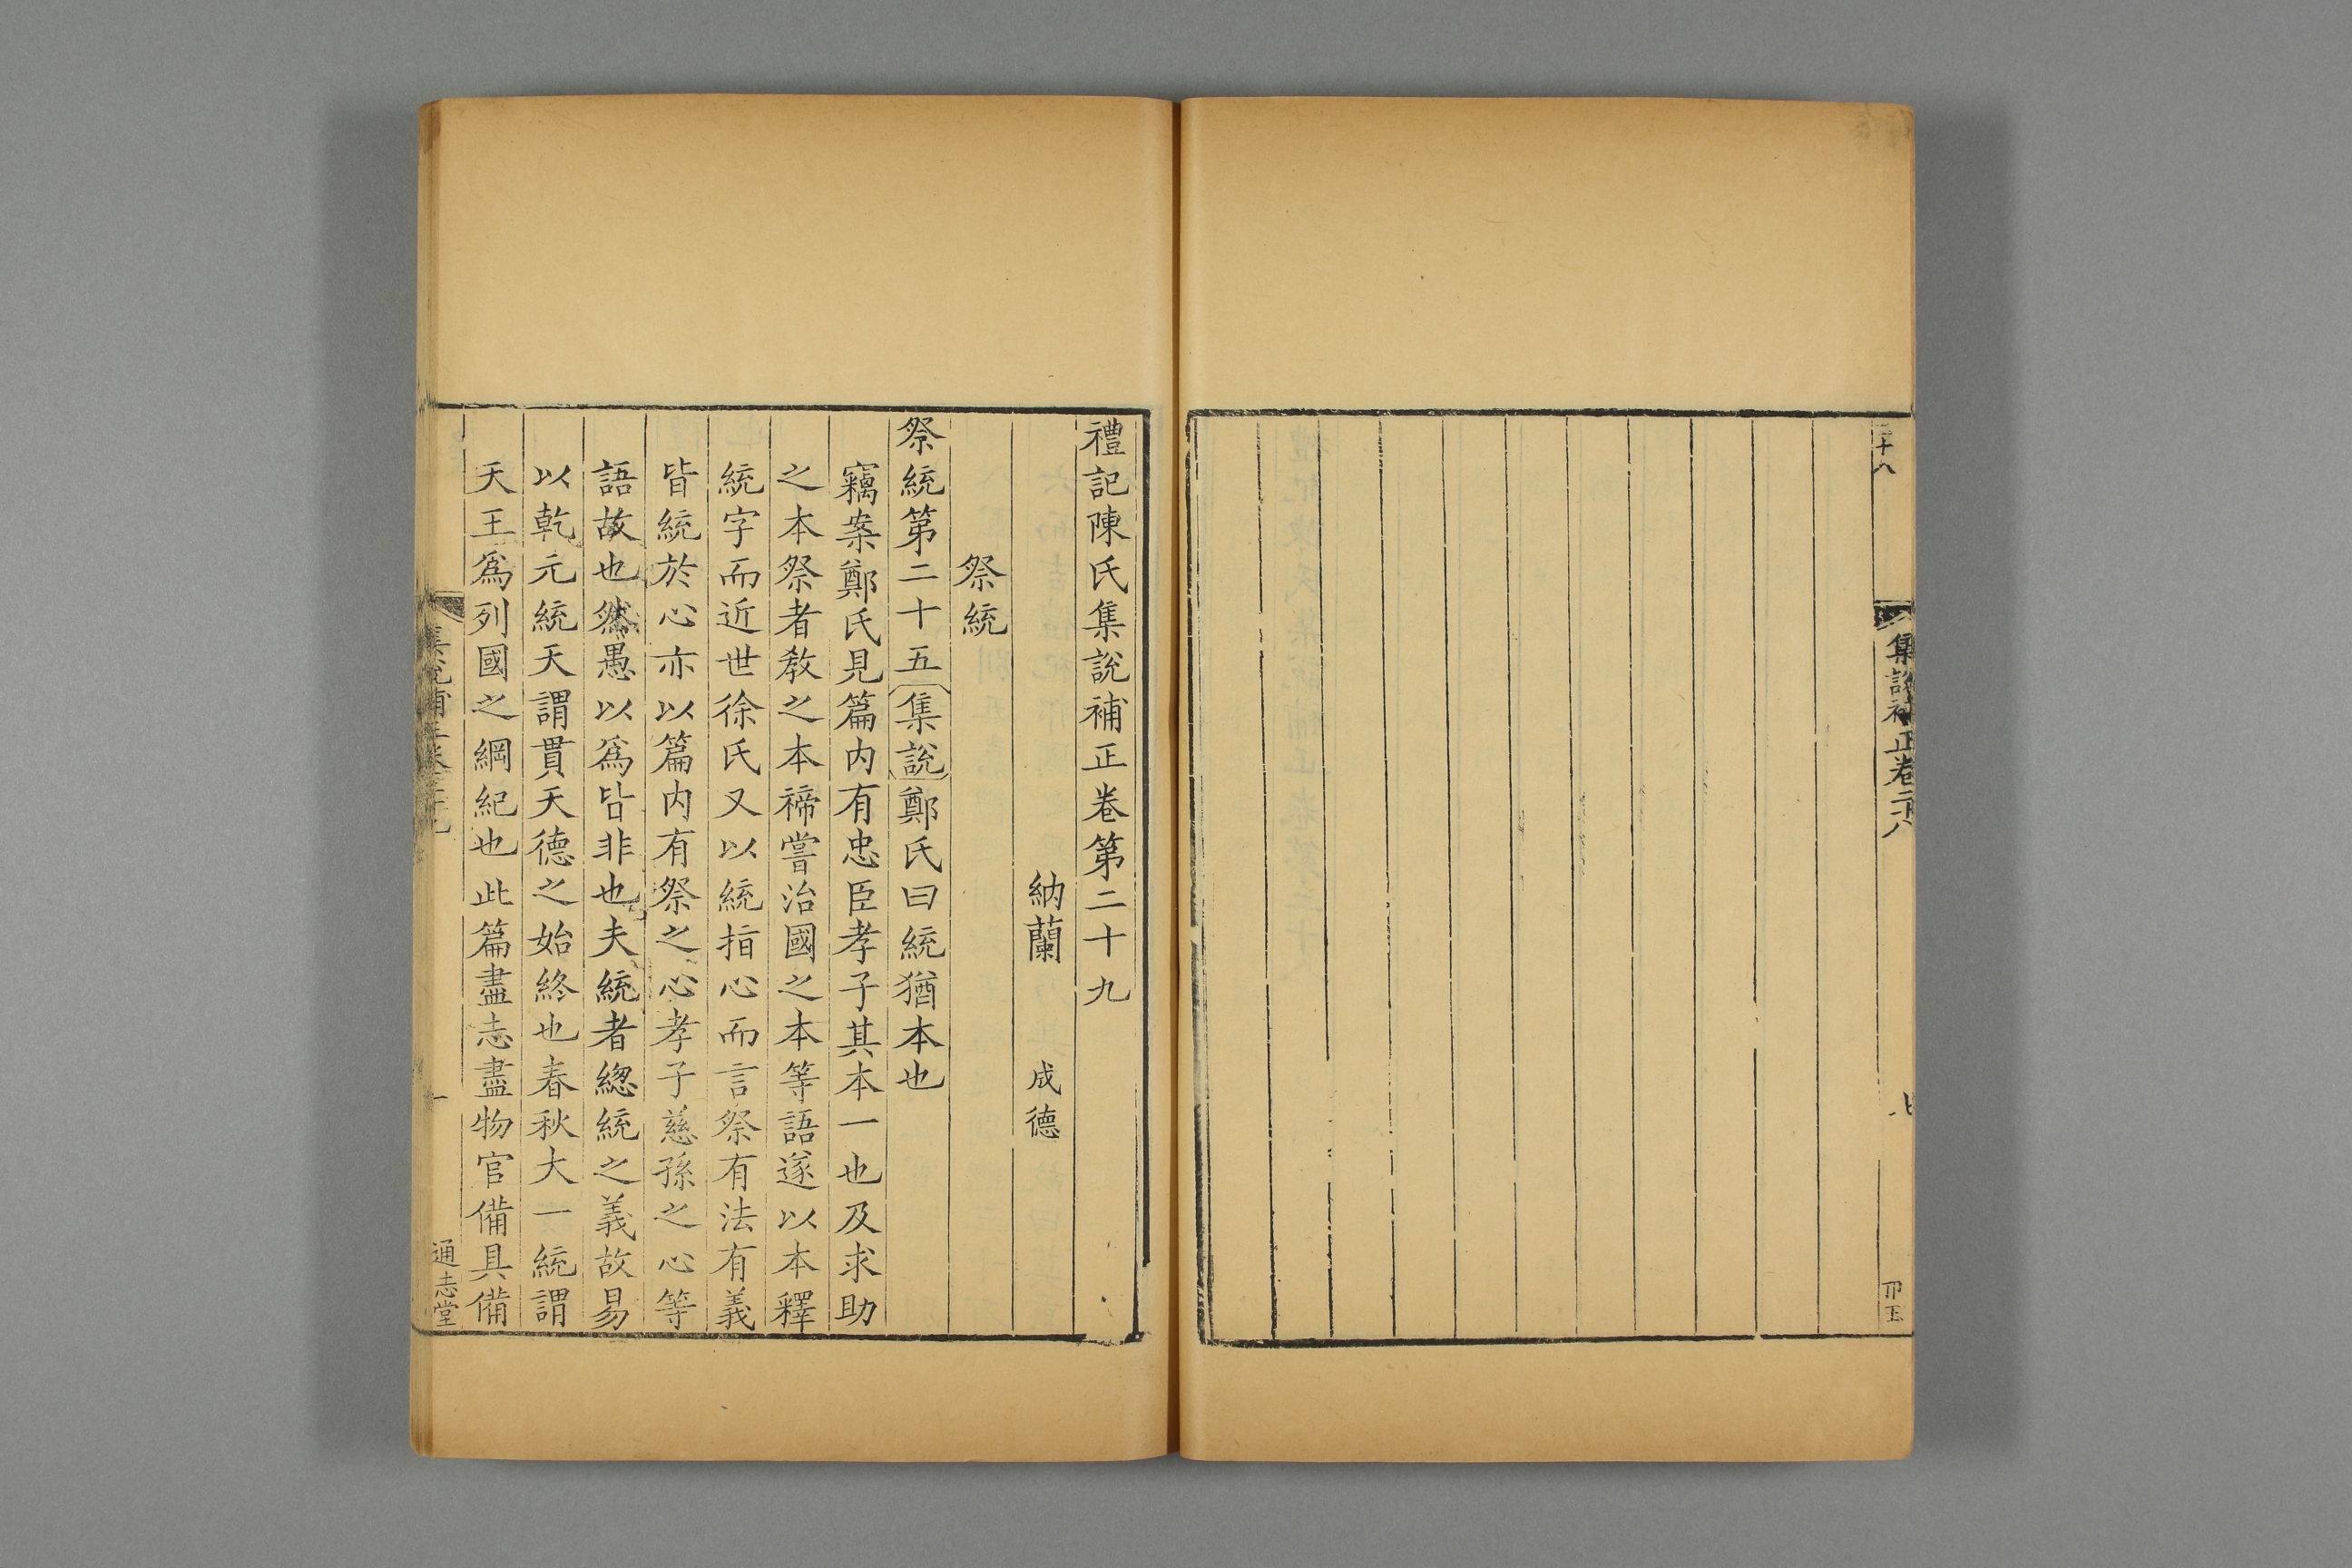 集說補正卷二十八
禮記陳氏集說補正卷第二十九
納蘭 成德
祭統
祭統第二十五集說鄭氏曰統猶本也
竊案鄭氏見篇内有忠臣孝子其本一也及求助
之本祭者敎之本禘嘗治國之本等語遂以本釋
統字而近世徐氏又以統指心而言祭有法有義
皆統於心亦以篇内有祭之心孝子慈孫之心等
語故也然愚以爲皆非也夫統者緫統之義故易
以乾元統天謂貫天德之始終也春秋大一統謂
天王爲列國之綱紀也此篇盡志盡物官備具備
集說補正卷二十九 一 通志堂